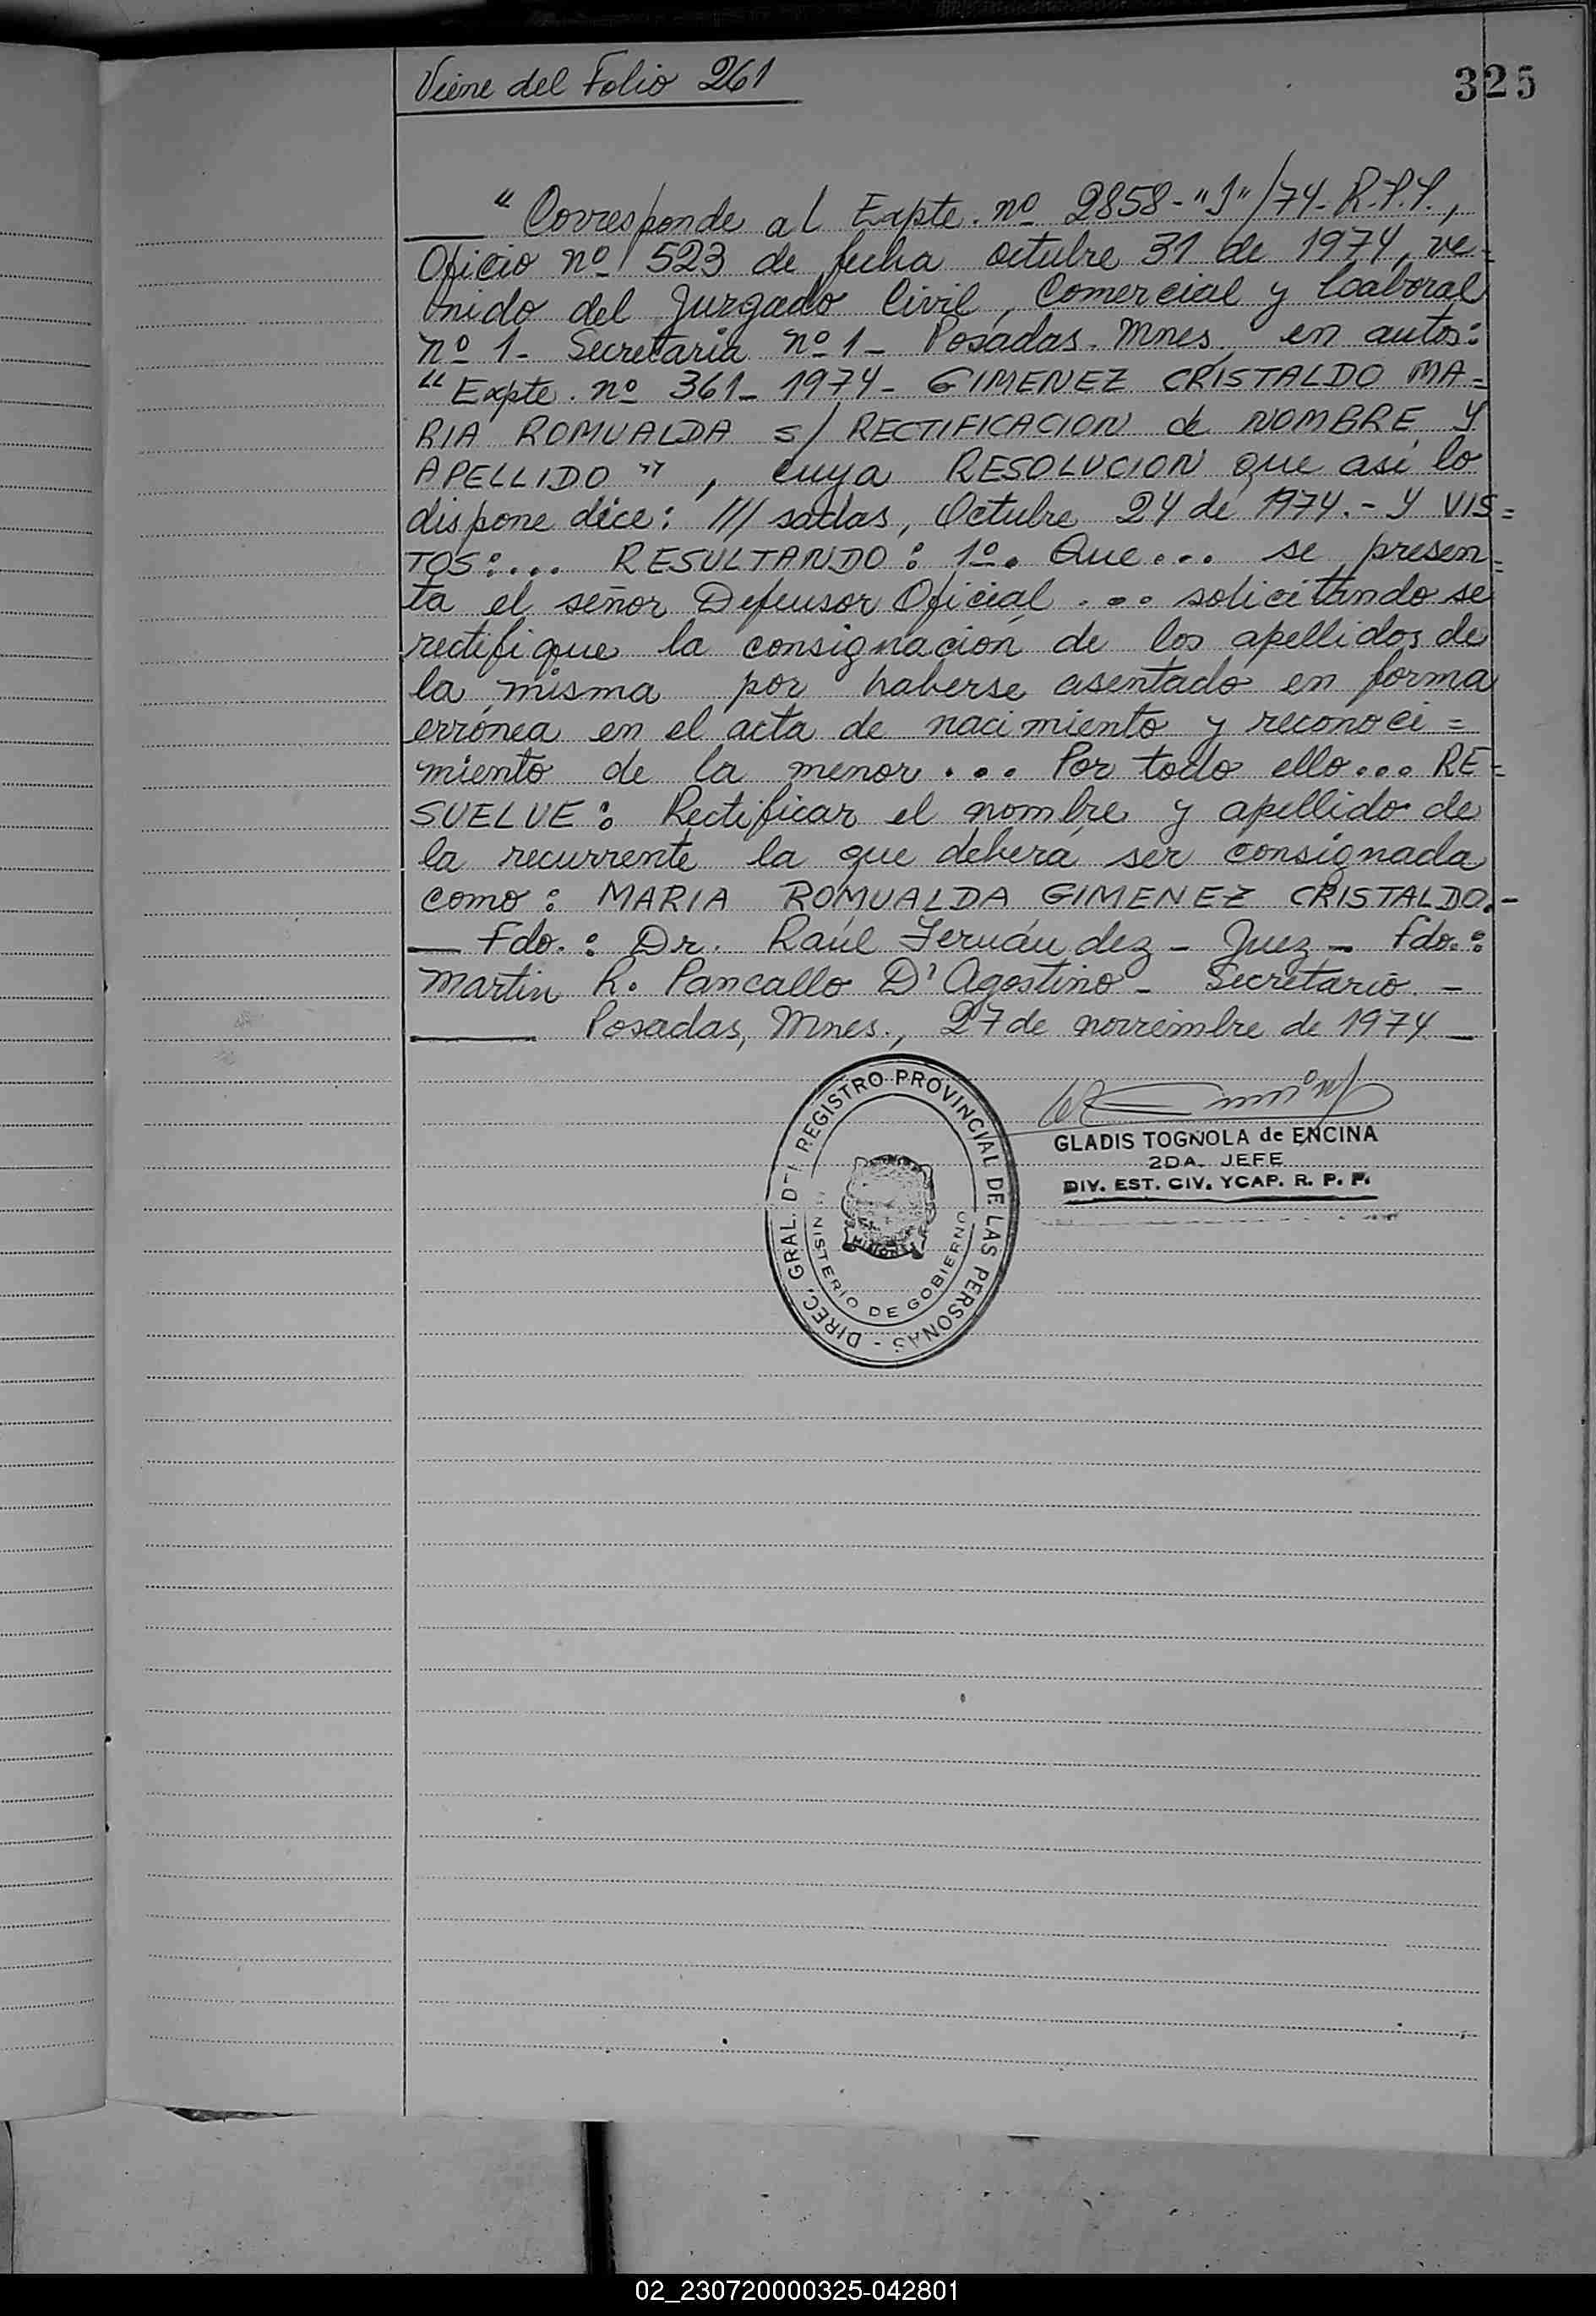 Viene del Folio 261
325
" Corresponde al Expte. nº 2858-"J"/74- R.P.P.,
Oficio nº 523 de fecha octubre 31 de 1974, ve=
nido del Juzgado Civil, Comercial y Laboral
nº 1- Secretaria nº 1- Posadas. Mnes. en autos:
"Expte. nº 361- 1974- GIMENEZ CRISTALDO MA=
RIA ROMUALDA s/ RECTIFICACION de NOMBRE Y
APELLIDO", cuya RESOLUCION que asi lo
dispone dice: ///sadas, Octubre 24 de 1974.- Y VIS=
TOS:... RESULTANDO: 1º. Que... se presen=
ta el señor Defensor Oficial ... solicitando se
rectifique la consignación de los apellidos de
la misma por haberse asentado en forma
errónea en el acta de nacimiento y reconoci=
miento de la menor... Por todo ello... RE=
SUELVE: Rectificar el nombre y apellido de
la recurrente la que deberá ser consignada
como: MARIA ROMUALDA GIMENEZ CRISTALDO.-
— Fdo.: Dr. Raúl Fernández - Juez - Fdo.:
Martin R. Pancallo D'Agostino - Secretario. -
— Posadas, Mnes., 27 de noviembre de 1974 —
DIREC. GRAL. DEL REGISTRO PROVINCIAL DE LAS PERSONAS -
MINISTERIO DE GOBIERNO
MISIONES
GLADIS TOGNOLA de ENCINA
2DA. JEFE
DIV. EST. CIV. YCAP. R. P. P.
02_230720000325-042801